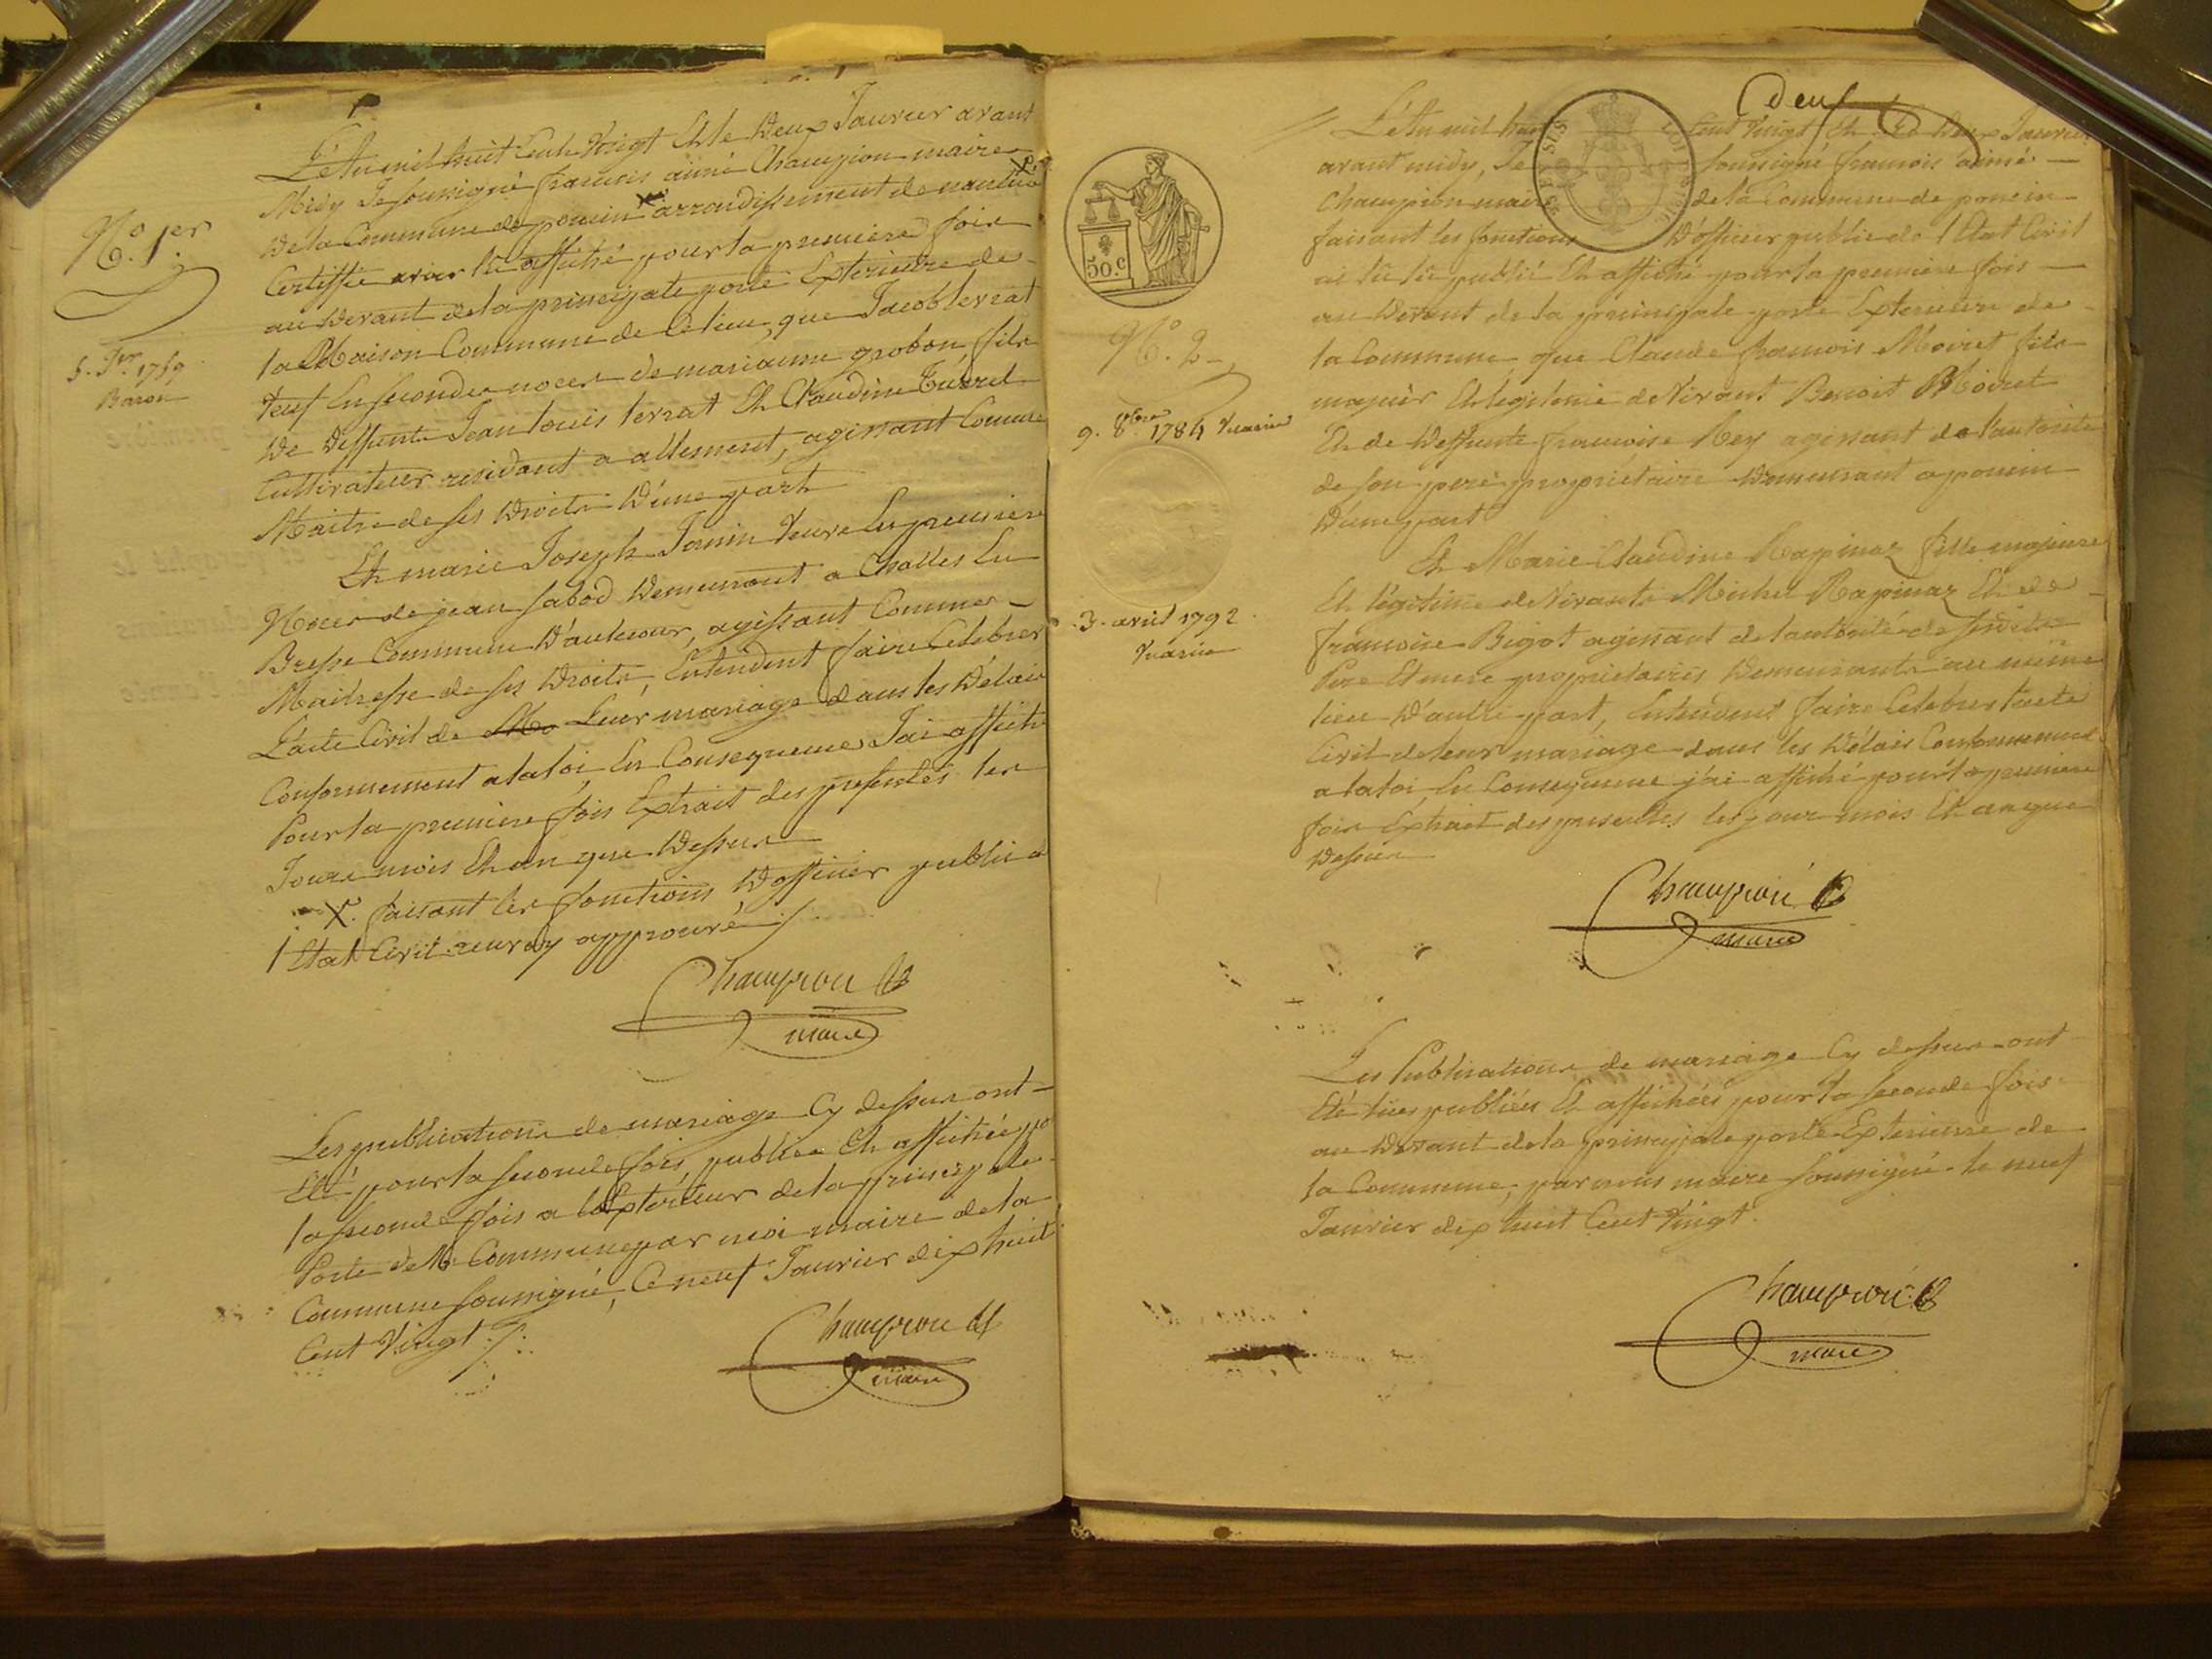 N.o 1.er
5. 7.er 1759
Baron
L'An mil huit Cent Vingt Et le Deux Janvier avant
Midy Je soussigné francois aimé Champion maire
De la Commune de poncin arrondissement de nantua
Certiffie avoir lu affiché pour la premiere fois
au Devant de la principale porte Exterieure de
la Maison Commune de Ce lieu, que Jacob terrat
Veuf En secondes noces de marianne grobon, fils
De Deffunts Jean louis terrat Et Claudine
Cultivateur residant a allement, agissant Comme
Maitre de ses Droits D'une part
Et marie Joseph Janin Veuve En premiere
Noces de jean sabod Demeurant a Challes En
Bresse Commune D'autre part, agissant Comme
Maitresse de ses Droits, Entendent faire Celebrer
L'acte Civil de Leur mariage dans les Délais
Conformement a la loi, En Consequence J'ai affiché
Pour la premiere fois Extrait des presentes les
Jour mois Et an que Dessus
X. faisant les fonctions D'officier public de
l'Etat Civil renvoy approuvé ./.
Champion
maire
Les publications de mariage Cy dessus ont
Eté pour la seconde fois, publiée Et affichée po
la seconde fois a l'Extérieur de la principale
Porte de la Commune par moi maire de la
Commune soussigné, Ce neuf Janvier dix huit
Cent Vingt ./.
Champion
maire
deux
50.C
N.o 2
9. 8bre 1784
3. avril 1792
L'An mil huit Cent Vingt Et Le Deux Janvier
avant midy, Je soussigné francois aimé
Champion maire de la Commune de poncin
faisant les fonctions D'officier public de l'Etat Civil
ai lu publié Et affiché pour la premiere fois
au Devant de la principale porte Exterieure de
la Commune, que Claude francois Moiret fils
majeur Et legitime de Vivant Benoit Moiret
Et de Deffunte francoise Rey agissant de l'autorité
de son pere proprietaire Demeurant a poncin
D'une part
Et Marie Claudine Rapinaz fille majeure
Et légitime de Vivants Michel Rapinaz Et de
francoise Bigot agissant de l'autorité de sesdits
Pere Et mere proprietaires Demeurants au même
lieu D'autre part, Entendent faire Celebrer l'acte
Civil de leur mariage dans les Délais Conformement
a la loi En Consequence j'ai affiché pour la premiere
fois Extrait des presentes les jour mois Et an que
Dessus
Champion
maire
Les Publications de mariage Cy dessus ont
Eté lues publiées Et affichées pour la seconde fois
au Devant de la principale porte Exterieure de
la Commune, par nous maire soussigné le neuf
Janvier dix huit Cent Vingt.
Champion
maire